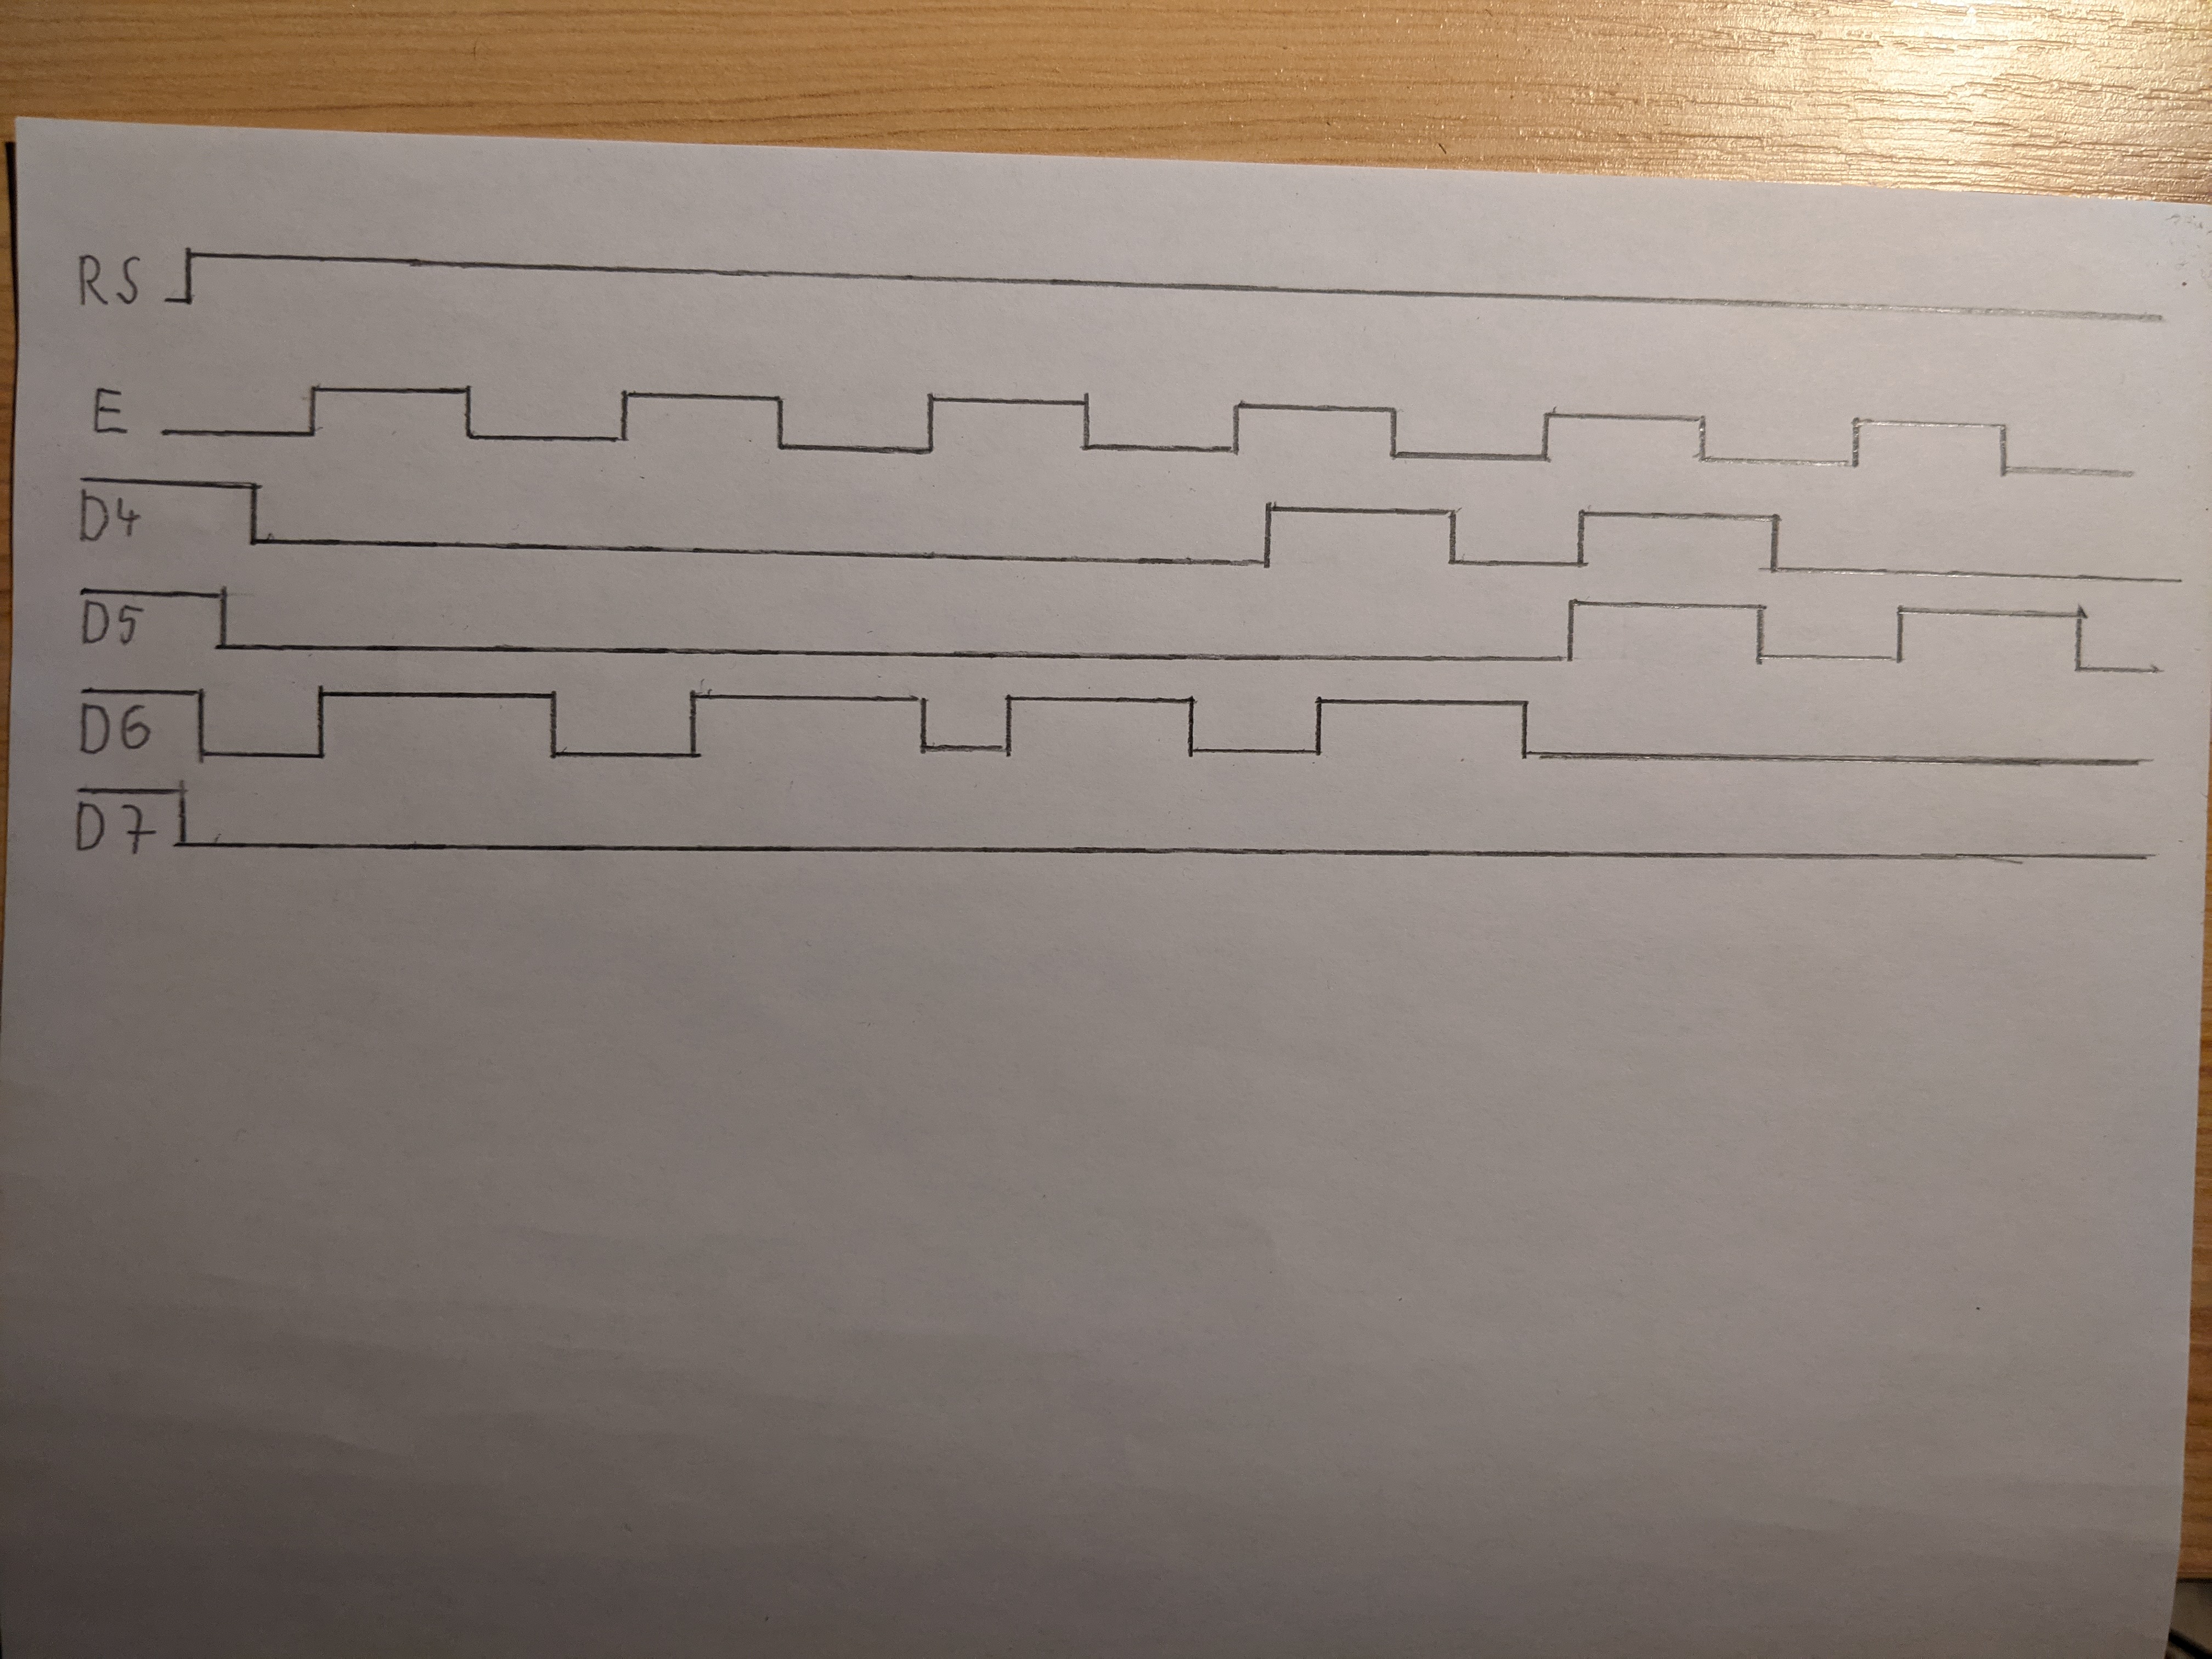 RS
E
D4
D5
D6
D7